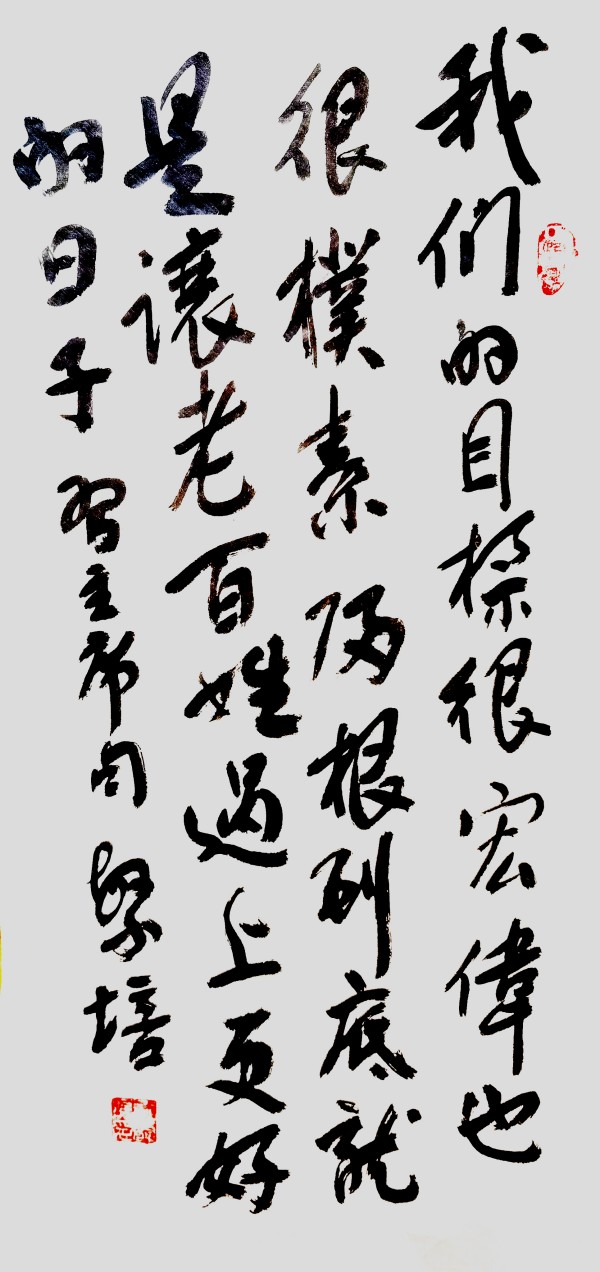 我们的目標很宏偉也
很樸素归根到底就
是讓老百姓過上更好
的日子 習主席句 培